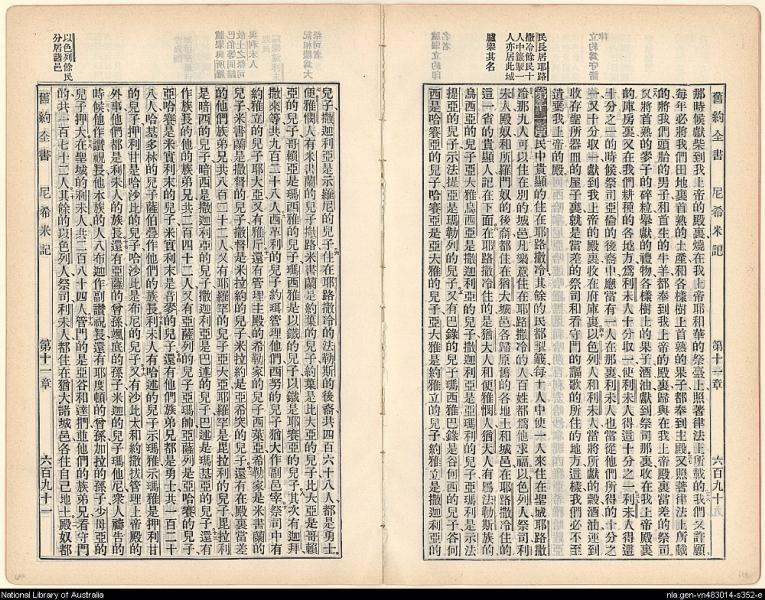 民長居耶路
撒冷餘民十
人中籤掣一
人亦居此城
臚舉其名
舊約全書 尼希米記 第十一章
那時候獻柴到我上帝的殿裏燒在我上帝耶和華的祭臺上照著律法上所載的我們又許願
每年必將我們田地裏首熟的土產和各樣樹上首熟的果子都奉到主殿又照著律法上所載
的將我們頭胎的男子和首生的牛羊都奉到我上帝的殿裏歸與在我上帝殿裏當差的祭司
又將首熟的麥子的碎粒舉獻的禮物各樣樹上的果子酒油獻到祭司那裏收在我上帝殿裏
的庫房裏又在我們耕種的各地方爲利未人十分取一使利未人得這十分之一利未人得這
十分之一的時候祭司亞倫的後裔中應當有一人在那裏利未人也當從他們所得的十分之
一又十分取一獻到我上帝的殿裏收在府庫裏以色列人和利未人當將所獻的穀酒油運到
收存聖所器皿的屋子裏就是當差的祭司和看守門的謳歌的所住的地方這樣我們必不至
這棄我上帝的殿
民中貴顯的住在耶路撒冷其餘的民都掣籤每十人中使一人來住在聖城耶路撒
冷那九人可以住在別的城邑凡樂意住在耶路撒冷的人百姓都爲他求福以色列人祭司利
未人殿奴和所羅門奴的後裔都住在猶大城邑各歸原舊的各地土和城邑在耶路撒冷住的
這一省的貴顯人記在下面在耶路撒冷住的是猶大人和便雅憫人猶大人有屬法勒斯族的
烏西亞的兒子亞大雅烏西亞是撒迦利亞的兒子撒迦利亞是亞瑪利的兒子亞瑪利是示法
提亞的兒子示法提亞是瑪勒列的兒子又有巴錄的兒子瑪西雅巴錄是谷何西的兒子谷何
西是哈賽亞的兒子哈賽亞是亞大雅的兒子亞大雅是約雅立的兒子約雅立是撒迦利亞的
以色列餘民
分居諸邑
兒子撒迦利亞是示羅尼的兒子住在耶路撒冷的法勒斯的後裔共四百六十八人都是勇士
便雅憫人有米書蘭的兒子撒路米書蘭是約葉的兒子約葉是比大亞的兒子比大亞是哥賴
亞的兒子哥賴亞是瑪西雅的兒子瑪西雅是以鐵的兒子以鐵是耶賽亞的兒子其次有迦拜
撒來等共九百二十八人西革利的兒子約珥管理他們西努的兒子猶大作副邑宰祭司中有
約雅立的兒子耶大亞又有雅斤還有管理主殿的希勒家的兒子西萊亞希勒家是米書蘭的
兒子米書蘭是撒督的兒子撒督是米拉約的兒子米拉約是亞希突的兒子還有在殿裏當差
的他們族弟兄共八百二十二人又有耶羅罕的兒子亞大亞耶羅罕是毘拉利的兒子毘拉利
是暗西的兒子暗西是撒迦利亞的兒子撒迦利亞是巴述的兒子巴述是瑪基亞的兒子還有
作族長的他的族弟兄共二百四十二人又有亞薩列的兒子亞瑪帥亞薩列是亞哈賽的兒子
亞哈賽是米實利末的兒子米實利末是音麥的兒子還有他們族弟兄都是勇士共一百二十
八人哈基多林的兒子薩伯疊作他們的族長利未人有哈述的兒子示瑪雅哈述是押利甘
的兒子押利甘是哈沙比的兒子哈沙比是布尼的兒子又有沙比太和約撒拔管理上帝殿的
外事他們都是利未人的族長還有亞薩的曾孫颯底的孫子米迦的兒子瑪他尼衆人禱告的
時候他作讚視長他本族的人八布迦作副讚視長還有耶度頓的曾孫加拉的孫子沙母亞的
兒子押大在聖城的利未人共二百八十四人管門的是亞谷和達們並他們的族弟兄看守門
的共一百七十二人其餘的以色列人祭司利未人都住在猶大諸城邑各住自己地土殿奴都
舊約全書 尼希米記 第十一章 六百九十一
National Library of Australia
nla.gen-vn483014-s352-e